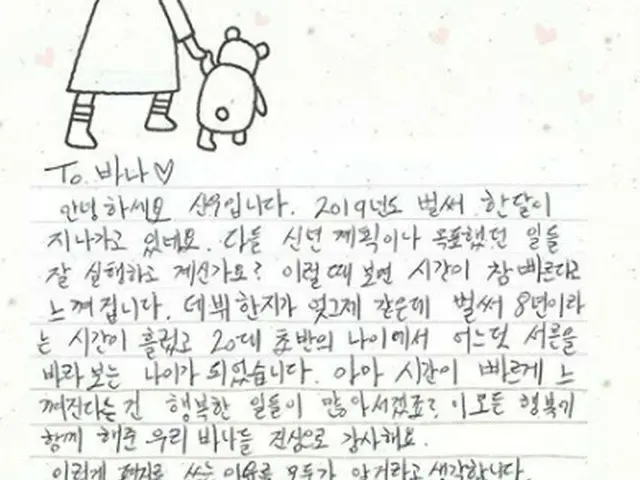 To. 바나♡
안녕하세요 산우입니다. 2019년도 벌써 한달이
지나가고 있네요. 다들 신년 계획이나 목표했던 일들
잘 실행하고 계신가요? 이럴때 보면 시간이 참 빠르다고
느껴집니다. 데뷔한지가 엊그제 같은데 벌써 8년이라
는 시간이 흘렀고 20대 초반의 나이에서 어느덧 서른을
바라보는 나이가 되었습니다. 아마 시간이 빠르게 느
껴진다는건 행복한 일들이 많아서겠죠? 이 모든 행복기
함께 해준 우리 바나들 진심으로 감사해요.
이렇게 편지를 쓰는 이유를 모두가 알거라고 생각합니다.